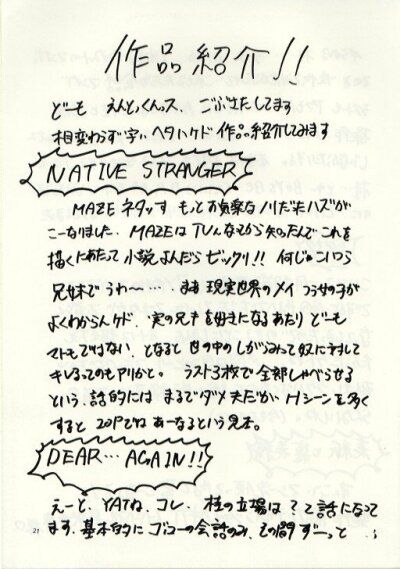 作品紹介!!
どーも えんどっくんっス ごぶさたしてます
相変わらず字ヘタしケド 作品紹介してみます
NATIVE STRANGER
MAZEネタッす もっとお気楽なノリだたハズが
こーなりました. MAZEはTVんなから知ったんでこれを
描くにあたって小説よんだらビックリ!! 何じゃこいつら
兄妹でうわ〜 … まぁ現実世界のメイつう女の子が
よくわからんケド、実の兄キを好きになるあたり どーも
マトモでけない、となると世の中のしがらみって奴に対して
キレるってのもアリかと。 ラスト3枚で全部しゃべらせる
という、話的にはまるでダメ夫だが Hシーンを多く
すると20Pではあーなるという見本。
DEAR… AGAIN!!
えーと、YATね、コレ. 桂の立場は?て話になって
ます、基本的にゴローの会話のみ、その間ずーっと
21